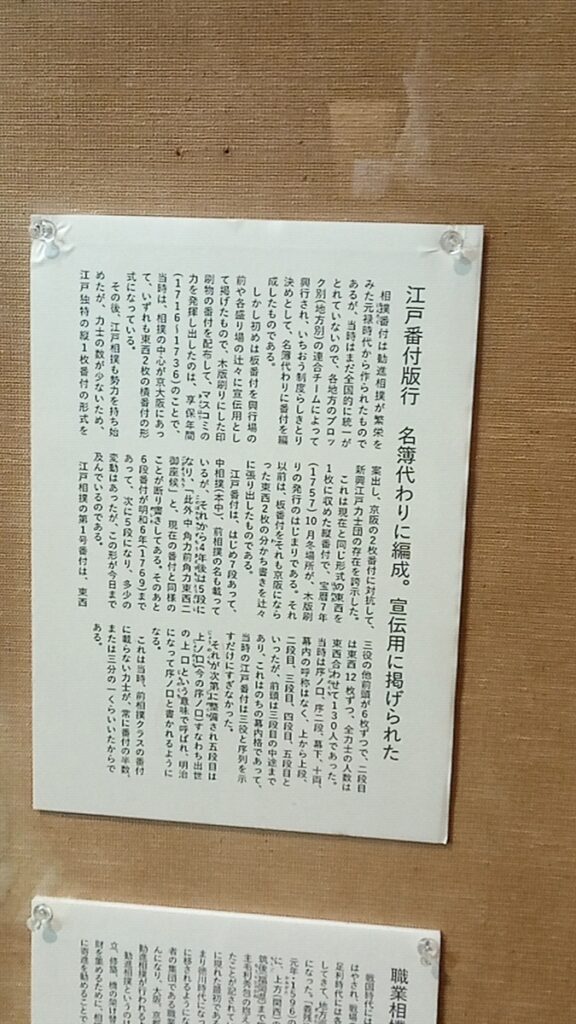 江戸番付版行　名簿代わりに編成。宣伝用に掲げられた
相撲番付は勧進相撲が繁栄を
みた元禄時代から作られたもので
あるが、当時はまだ全国的に統一が
とれていないので、各地方のブロッ
ク別(地方別)の連合チームによって
興行され、いちおう制度らしきとり
決めとして、名簿代わりに番付を編
成したものである。
しかし初めは板番付を興行場の
前や各盛り場の辻々に宣伝用とし
て掲げたもので、木版刷りにした印
刷物の番付を配布して、マスコミの
力を発揮し出したのは、享保年間
(1716～1736)のことで、
当時は、相撲の中心が京大阪にあっ
て、いずれも東西2枚の横番付の形
式になっている。
その後、江戸相撲も勢力を持ち始
めたが、力士の数が少ないため、
江戸独特の縦1枚番付の形式を
案出し、京阪の2枚番付に対抗して、
新興江戸力士団の存在を誇示した。
これは現在と同じ形式の東西を
1枚に収めた縦番付で、宝暦7年
(1757)10月冬場所が、木版刷
りの発行のはじまりである。それ
以前は、板番付をそれも京阪になら
った東西2枚の分かち書きを辻々
に張り出したものである。
江戸番付は、はじめ7段あって、
中相撲(本中)、前相撲の名も載って
いるが、それから4年後は5段に
なり、「此外中角力前角力東西二
御座候」と、現在の番付と同様の
ことが断り書きしてある。そのあと
6段番付が明和6年(1769)まで
あって、次に5段になり、多少の
変動はあったが、この形が今日まで
及んでいるのである。
江戸相撲の第1号番付は、東西
三役の他前頭が6枚ずつで、二段目
は東西12枚ずつ、全力士の人数は
東西合わせて130人であった。
当時は序ノ口、序二段、幕下、十両、
幕内の呼称はなく、上から上段、
二段目、三段目、四段目、五段目と
いったが、前頭は三段目の中途まで
あり、これはのちの幕内格であって、
当時の江戸番付は三役と序列を示
すだけにすぎなかった。
それが次第に整備され五段目は
上ノ口(今の序ノ口)すなわち出世
の上り口という意味で呼ばれ、明治
になって序ノ口と書かれるように
なる。
これは当時、前相撲クラスの番付
に載らない力士が、常に番付の半数、
または三分の一くらいいたからで
ある。
職業相
戦国時代には
はやされ、戦場
足利時代には各
してきて、地方
になった。「義残
元年・1596)の
に、上方(関西)の
筑後(福岡県)まで
主毛利秀包の抱え
たことが記されて
に現れた最初である
まり徳川時代になっ
に移されるようにな
者の集団である職業
んになり、大阪、京都
勧進相撲が行われるよ
勧進相撲というのは
立、修築、橋の架け替
財を集めるために、相
に寄進を勧めることで